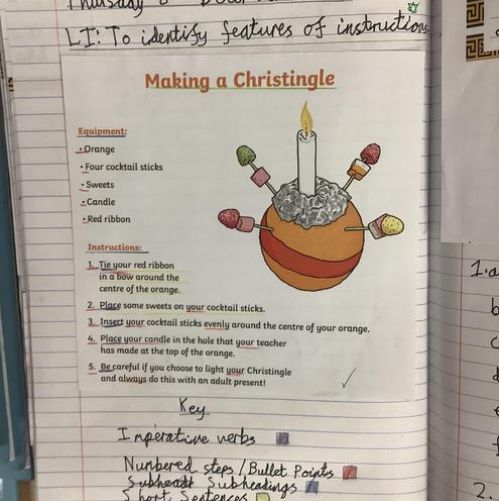 Thursday
LI: To identify features of instructions
Making a Christingle
Equipment:
• Orange
• Four cocktail sticks
• Sweets
• Candle
• Red ribbon
Instructions:
1. Tie your red ribbon
in a bow around the
centre of the orange.
2. Place some sweets on your cocktail sticks.
3. Insert your cocktail sticks evenly around the centre of your orange.
4. Place your candle in the hole that your teacher
has made at the top of the orange.
5. Be careful if you choose to light your Christingle
and always do this with an adult present!
Key
Imperative verbs
Numbered steps / Bullet Points
Subheadings
Short Sentences
1.a
b
c
d
e
f
2